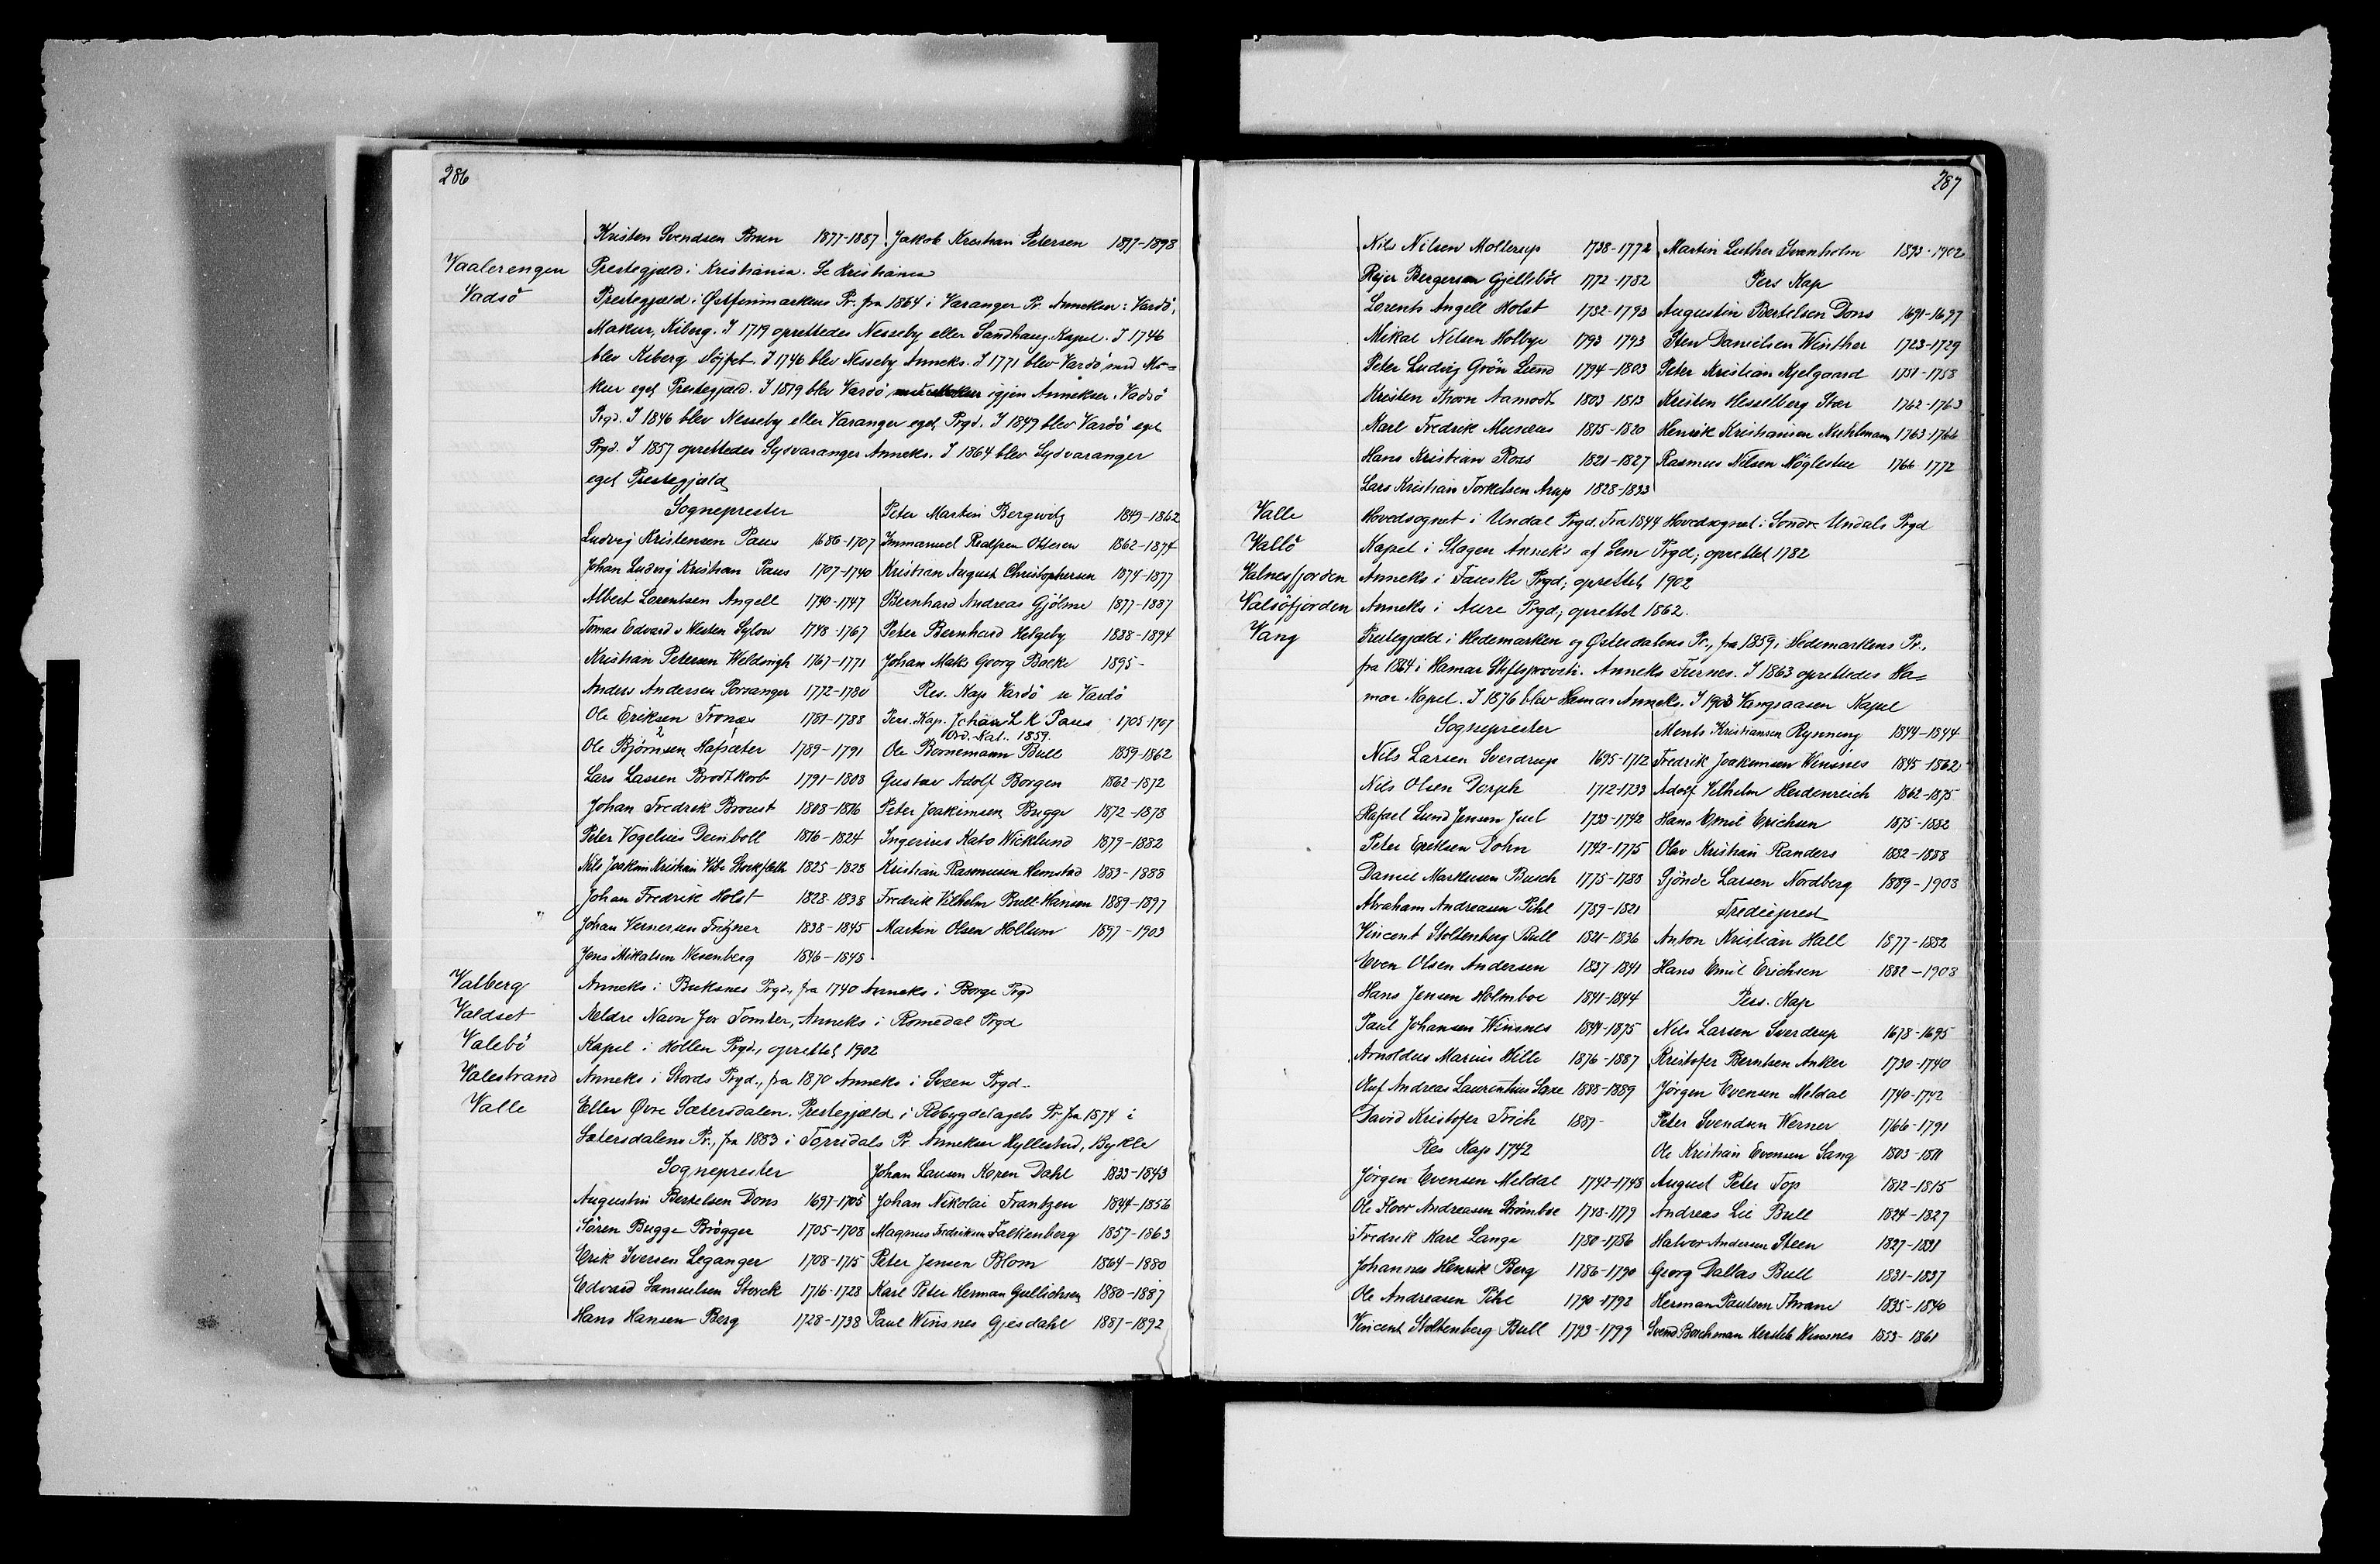 286
Kristen Svendsen Brun 1877-1887 Jakob Kristian Petersen 1877-1898
Vaalerengen Prestegjæld i Kristiania. Se Kristiania
Vadsö Prestegjæld i Østfinmarkens Pr. fra 1864 i Varanger Pr. Annekser: Vardö,
Makur, Kiberg. I 1719 oprettedes Nesseby eller Sandhaug Kapel. I 1746
blev Kiberg slöjfet. I 1746 blev Nesseby Anneks. I 1771 blev Vardö med Ma=
kur eget Prestegjæld. I 1819 blev Vardö igjen Annekser i Vadsö
Prgd. I 1846 blev Nesseby eller Varanger eget Prgd. I 1849 blev Vardö eget
Prgd. I 1857 oprettedes Sydvaranger Anneks. I 1864 blev Sydvaranger
eget Prestegjæld
Sogneprester Peter Martin Bergwitz 1849-1862
Ludvig Kristensen Paus 1686-1707 Immanuel Ottesen 1862-1874
Johan Ludvig Kristian Paus 1707-1740 Kristian August Christophersen 1874-1877
Albert Lorentsen Angell 1740-1747 Bernhard Andreas Gjölme 1877-1887
Tomas Edvard v Westen Sylow 1748-1767 Peter Bernhard Helgeby 1888-1894
Kristian Petersen Weldingh 1767-1771 Johan Maks Georg Bocke 1895-
Anders Andersen Porsanger 1772-1780 Res. Kap Vardö se Vardö
Ole Eriksen Tronæs 1781-1788 Pers. Kap. Johan L K Paus 1705-1707
Ord. Kat. 1859.
Ole Björnsen Hafsæter 1789-1791 Ole Bornemann Bull 1859-1862
Lars Lassen Brodtkorb 1791-1808 Gustav Adolf Borgen 1862-1872
Johan Fredrik Brorest 1808-1816 Peter Joakimsen Bugge 1872-1878
Peter Vogelius Deinboll 1816-1824 Ingerius Kato Wicklund 1879-1882
Nils Joakim Kristian Vibe Stockfleth 1825-1828 Kristian Rasmusen Hemstad 1883-1888
Johan Fredrik Holst 1828-1838 Fredrik Vilhelm Bull-Hansen 1889-1897
Johan Wernersen Fritzner 1838-1845 Martin Olsen Hollum 1897-1903
Jens Mikalsen Wesenberg 1846-1848
Valberg Anneks i Buksnes Prgd, fra 1740 Anneks i Borge Prgd
Valdset Aeldre Navn for Tomter, Anneks i Romedal Prgd
Valebö Kapel i Hollen Prgd., oprettet 1902
Valestrand Anneks i Stords Prgd., fra 1870 Anneks i Sveen Prgd.
Valle Eller Øvre Sætersdalen. Prestegjæld i Robygdelagets Pr. fra 1874 i
Sætersdalens Pr., fra 1883 i Torridals Pr. Annekser Hyllestad, Bykle
Sogneprester Johan Lausen Koren Dahl 1833-1843
Augustin Bertelsen Dons 1697-1705 Johan Nikolai Frantzen 1844-1856
Sören Bugge Brögger 1705-1708 Magnus Fredriksen Falkenberg 1857-1863
Erik Iversen Leganger 1708-1715 Peter Jensen Blom 1864-1880
Edvard Samuelsen Storck 1716-1728 Karl Peter Herman Gullichsen 1880-1887
Hans Hansen Berg 1728-1738 Paul Winsnes Gjesdahl 1887-1892
287
Nils Nilsen Mollerup 1738-1772 Martin Luther Svanholm 1893-1902
Rejer Bergersen Gjelleböl 1772-1782 Pers Kap
Lorents Angell Holst 1782-1793 Augustin Bertelsen Dons 1691-1697
Mikal Nilsen Holbye 1793 1793 Sten Danielsen Winther 1723-1729
Peter Ludvig Grön Lund 1794-1803 Peter Kristian Kjelgaard 1751-1758
Kristen Thorn Aamodt 1803-1813 Kristen Hesselberg Stær 1762-1763
Karl Fredrik Musæus 1815-1820 Henrik Kristiansen 1763-1766
Hans Kristian Roes 1821-1827 Rasmus Nilsen Nöglestue 1766-1772
Lars Kristian Torkelsen Arup 1828-1833
Valle Hovedsognet i Undal Prgd. Fra 1844 Hovedsognet i Söndre Undals Prgd
Vallö Kapel i Slagen Anneks af Sem Prgd; oprettet 1782
Valnesfjorden Anneks i Fauske Prgd; oprettet 1902
Valsöfjorden Anneks i Aure Prgd; oprettet 1862.
Vang Prestegjæld i Hedemarken og Østerdalens Pr., fra 1859 i Hedemarkens Pr.,
fra 1864 i Hamar Stiftsprovsti. Anneks Furnes. I 1863 oprettedes Ha=
mar Kapel. I 1876 blev Hamar Anneks. I 1903 Vangsaasen Kapel
Sogneprester Ments Kristiansen Rynning 1844-1844
Nils Larsen Sverdrup 1695-1712 Fredrik Joakimsen Winsnes 1845-1862
Nils Olsen Dorph 1712-1733 Adolf Vilhelm Heidenreich 1862-1875
Rafael Lund Jensen Juel 1733-1742 Hans Emil Erichsen 1875-1882
Peter Ertlsen Dohn 1742-1775 Olav Kristian Randers 1882-1888
Daniel Markusen Busch 1775-1788 Sjönde Larsen Nordberg 1889-1903
Abraham Andreasen Pihl 1789-1821 Trediéprest
Vincent Stoltenberg Bull 1821-1836 Anton Kristian Hall 1877-1882
Even Olsen Andersen 1837-1841 Hans Emil Erichsen 1882-1903
Hans Jensen Holmboe 1841-1844 Pers. Kap
Paul Johansen Winsnes 1844-1875 Nils Larsen Sverdrup 1678-1695
Arnoldus Marius Hille 1876-1887 Kristofer Berntsen Anker 1730-1740
Oluf Andreas Laurentius Saxe 1888-1889 Jörgen Evensen Meldal 1740-1742
David Kristofer Frich 1889- Peter Svendsen Werner 1766-1791
Res Kap 1742 Ole Kristian Evensen Sang 1803-1811
Jörgen Evensen Meldal 1742-1748 August Peter Top 1812-1815
Ole Floor Andreasen Strömboe 1748-1779 Andreas Lie Bull 1824-1827
Fredrik Karl Lange 1780-1786 Halvor Andersen Steen 1827-1831
Johannes Henrik Berg 1786-1790 Georg Dallas Bull 1831-1837
Ole Andreasen Pihl 1790-1792 Herman Paulsen Thrane 1835-1840
Vincent Stoltenberg Bull 1793-1799 Svend Borchman Hersleb Winsnes 1853-1861